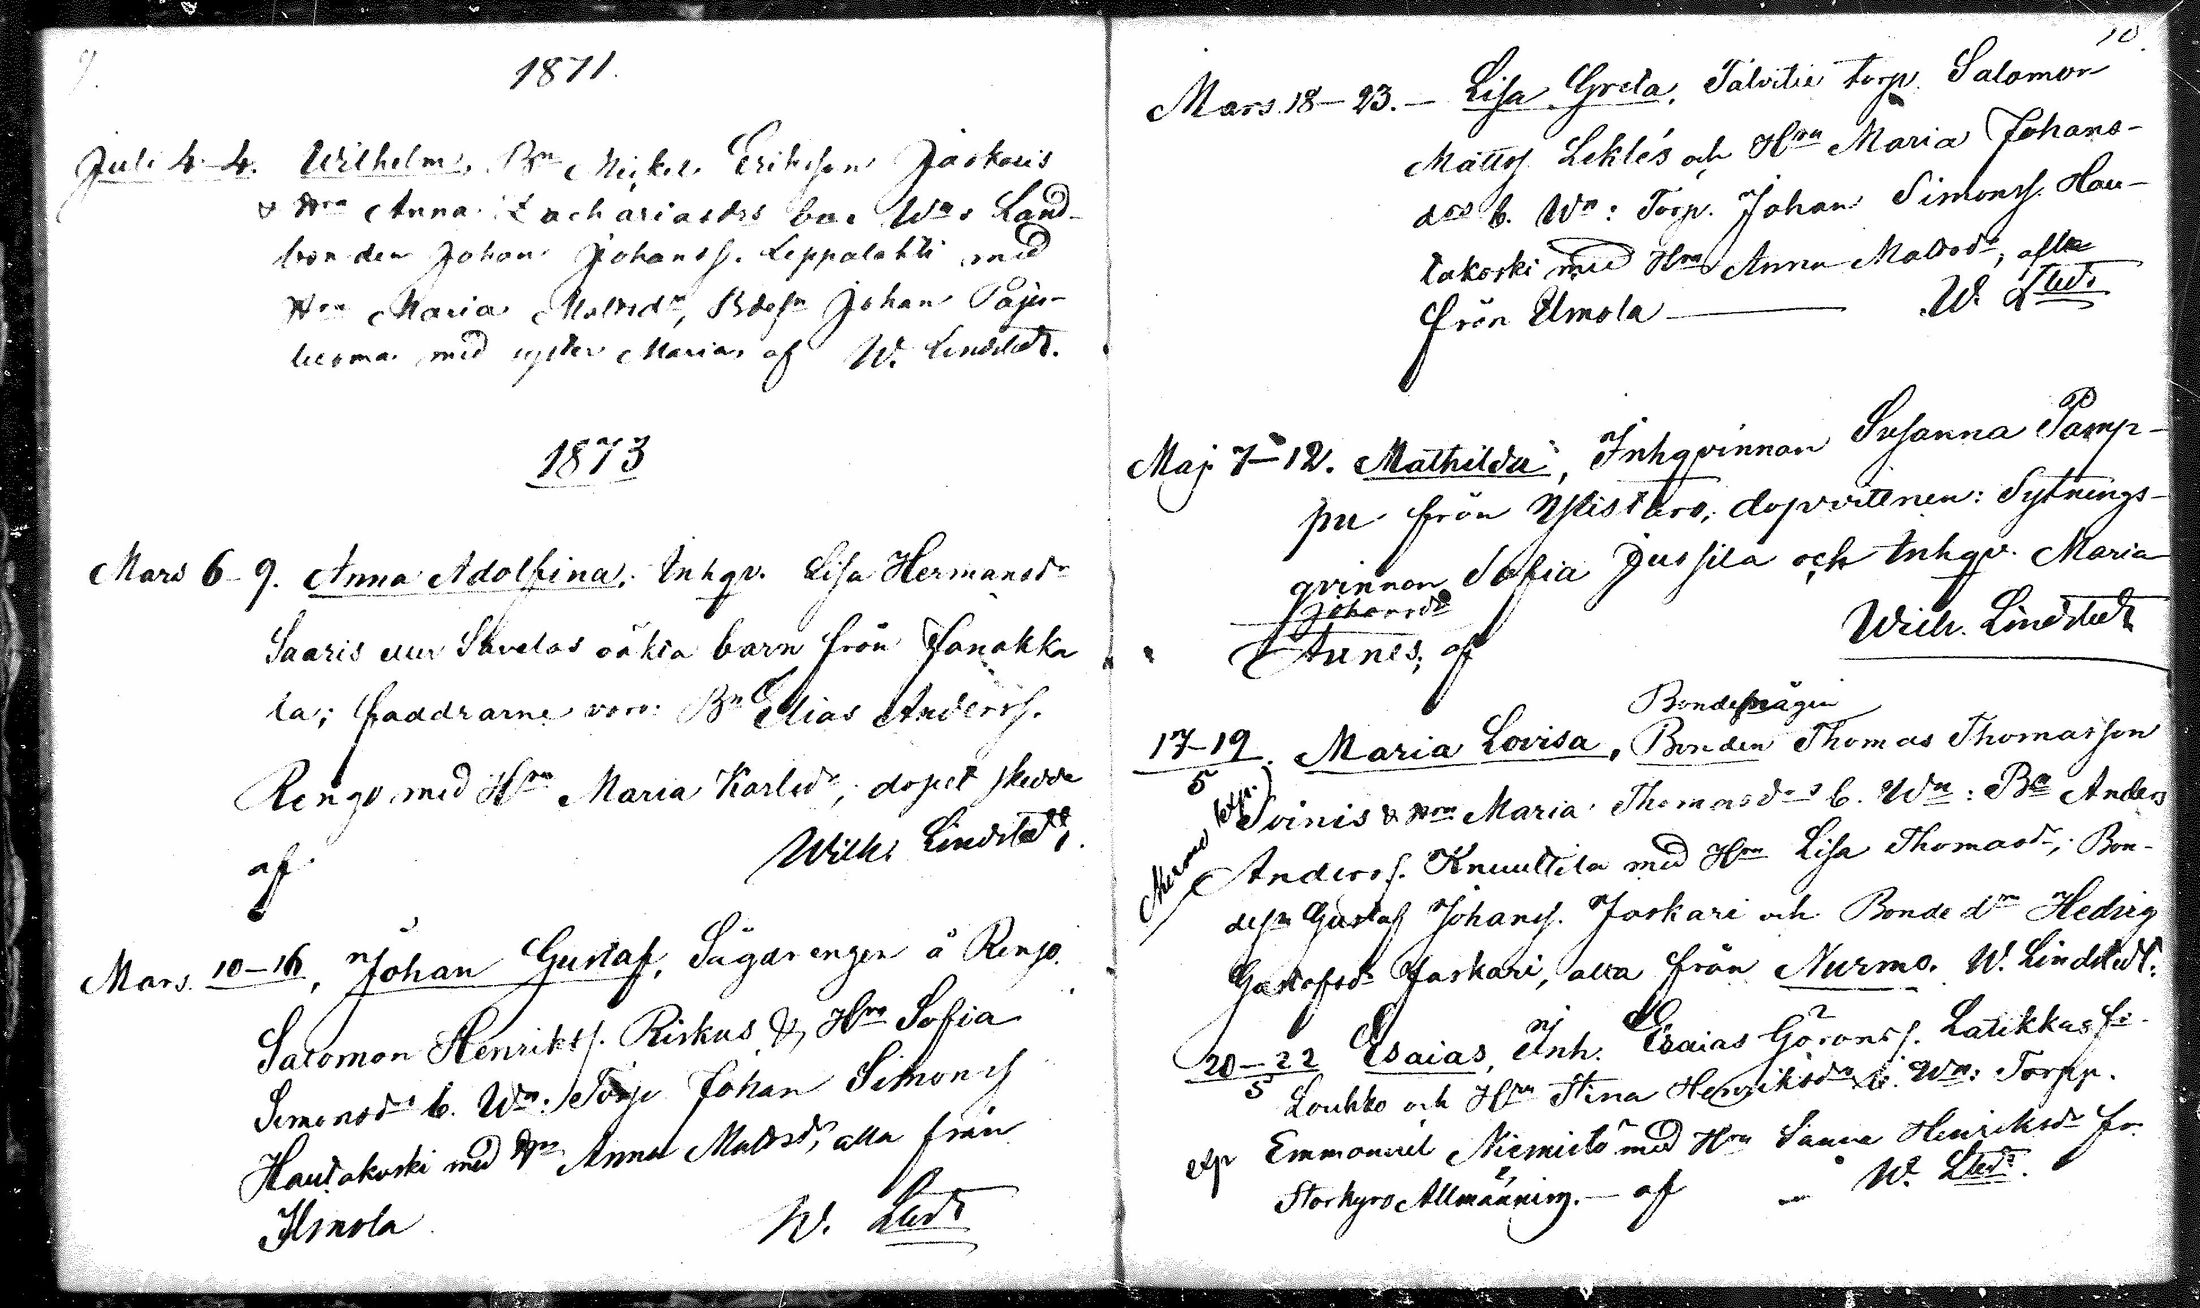 9.
1871.
Juli 4-4. Wilhelm, Bn Mickel Eriksson Jaskaris
& Hru Anna Zachariasdrs bar Wn: Land-
bonden Johan Johanss. Leppalahti med
Hru Maria Mattsdr, Bdesn Johan Paju-
luoma med syster Maria, af W. Lindstedt.
1873
Mars 6-9. Anna Adolfina, Inhqv. Lisa Hermansdr
Saaris barn från Janakka
la; faddrarne voro: Bn Elias Anderss.
Rengo med Hru Maria Karlsdr; dopet skedde
af Wilh. Lindstedt.
Mars 10-16, Johan Gustaf, Sågdrengen å Renso
Salomon Henrikss. Riskus & Hru Sofia
Simonsdrs b. Wn: Torp. Johan Simonss
Hautakoski med Hru Anna Mattsdr, alla från
Ilmola W. Lstedt
10.
Mars 18-23. - Lisa Greta, Talvitie torp. Salomon
Mattss. Leklés och Hru Maria Johans-
drs b. Wn: Torp. Johan Simonss. Hau-
takoski med Hru Anna Mattsdr, alla
från Ilmola W. Lstedt
Maj 7-12. Mathilda, Inhqvinnan Susanna Pamp-
pu från Ylistaro, dopvittnen: Sytnings-
qvinnan Sofia Jussila och Inhqv. Maria
Johansdr
af Wilh. Lindstedt
Bondemågen
17-19/5. Maria Lovisa, Bonden Thomas Thomasson
Svinis & Hru Maria Thomasdrs b. Wn: Bn Anders
Anderss. Knuuttila med Hru Lisa Thomasdr, Bon-
desn Gustaf Johanss. Jaskari och Bonde dtr Hedvig
Gustafsdr Jaskari, alla från Nurmo. W. Lindstedt.
Nurmo exp.
20-22/5 Esaias, Inh. Esaias Göranss. Latikkas fr.
Louhko och Hru Stina Henriksdrs b. Wn: Torpp.
exp Emmanuel Niemistö med Hru Sanna Henriksdr fr.
Storkyro Allmänning. - af - W. Lstedt.